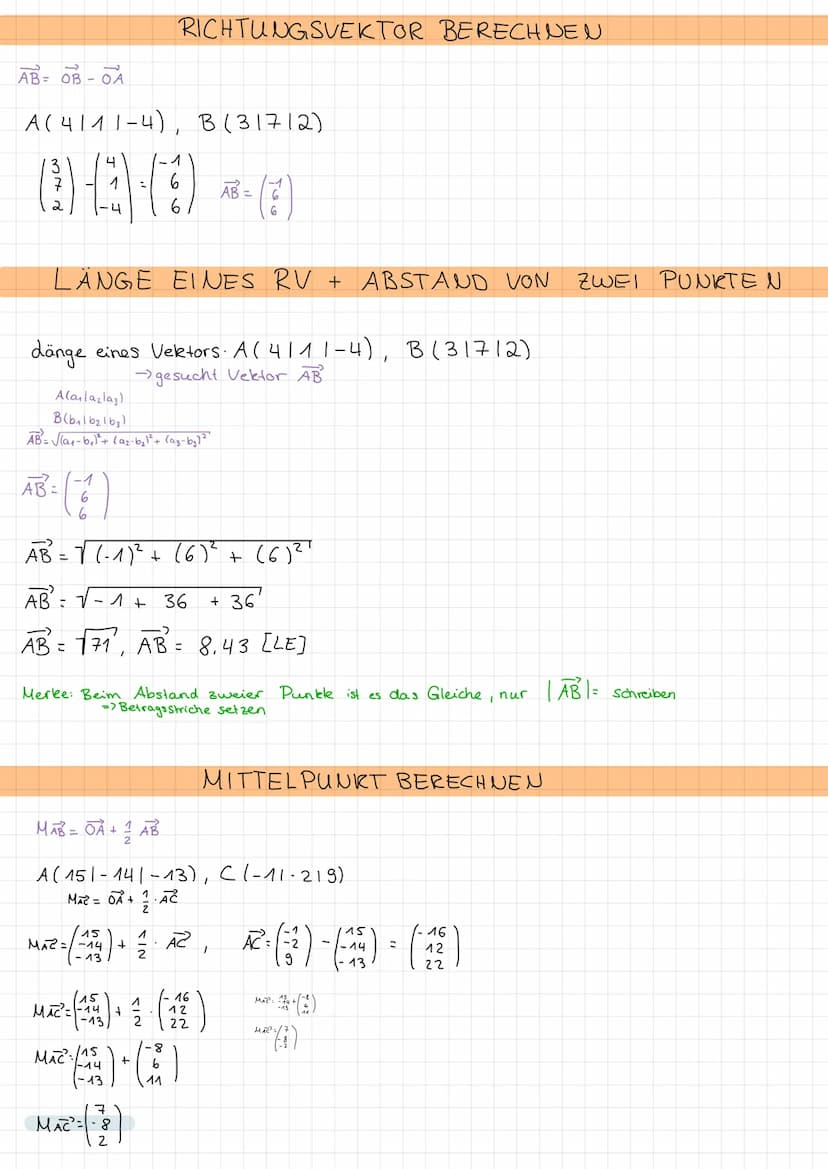 RICHTUNGSVEKTOR BERECHNEN
→AB = →OB - →OA
A(4|1|-4), B(3|7|2)
(3 7 2) - (4 1 -4) = (-1 6 6) →AB = (-1 6 6)
LÄNGE EINES RV + ABSTAND VON ZWEI PUNKTEN
Länge eines Vektors: A(4|1|-4), B(3|7|2)
→gesucht Vektor →AB
A(a₁|a₂|a₃)
B(b₁|b₂|b₃)
→AB = √(a₁-b₁)² + (a₂-b₂)² + (a₃-b₃)²
→AB = (-1 6 6)
→AB = √(-1)² + (6)² + (6)²
→AB = √-1 + 36 + 36
→AB = √71, →AB = 8,43 [LE]
Merke: Beim Abstand zweier Punkte ist es das Gleiche, nur |→AB| = schreiben
=> Betragsstriche setzen
MITTELPUNKT BERECHNEN
M→AB = →OA + 1/2 →AB
A(15|-14|-13), C(-1|-2|9)
M→AC = →OA + 1/2 · →AC
M→AC = (15 -14 -13) + 1/2 · →AC, →AC = (-1 -2 9) - (15 -14 -13) = (-16 12 22)
M→AC = (15 -14 -13) + 1/2 · (-16 12 22)
M→AC = (15 -14 -13) + (-8 6 11)
M→AC = 15 -14 -13 + (-8 6 11)
M→AC = (7 -8 -2)
M→AC = (7 -8 2)